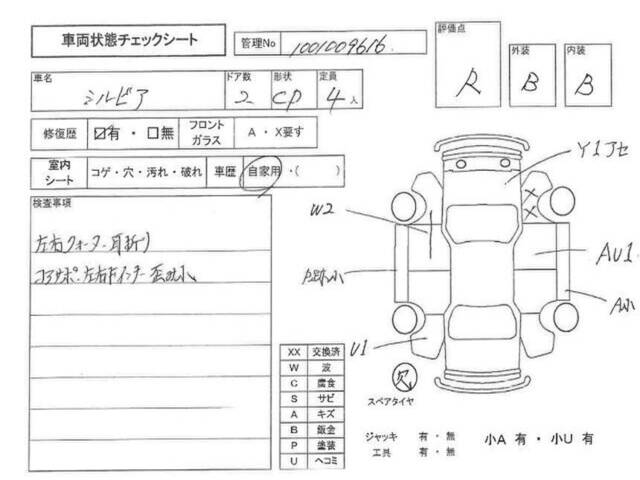 車両状態チェックシート
管理No 1001009616
評価点 R
外装 B
内装 B
車名 シルビア
ドア数 2
形状 CP
定員 4人
修復歴 ☑有・☐無
フロントガラス A・X要す
室内シート コゲ・穴・汚れ・破れ
車歴 自家用・( )
検査事項
左右クォーター耳折り
コアサポ・左右Fインナー
Y1アセ
W2
X
X
AU1
A小
U1
欠
スペアタイヤ
XX 交換済
W 波
C 腐食
S サビ
A キズ
B 鈑金
P 塗装
U ヘコミ
ジャッキ 有・無
工具 有・無
小A 有・小U 有